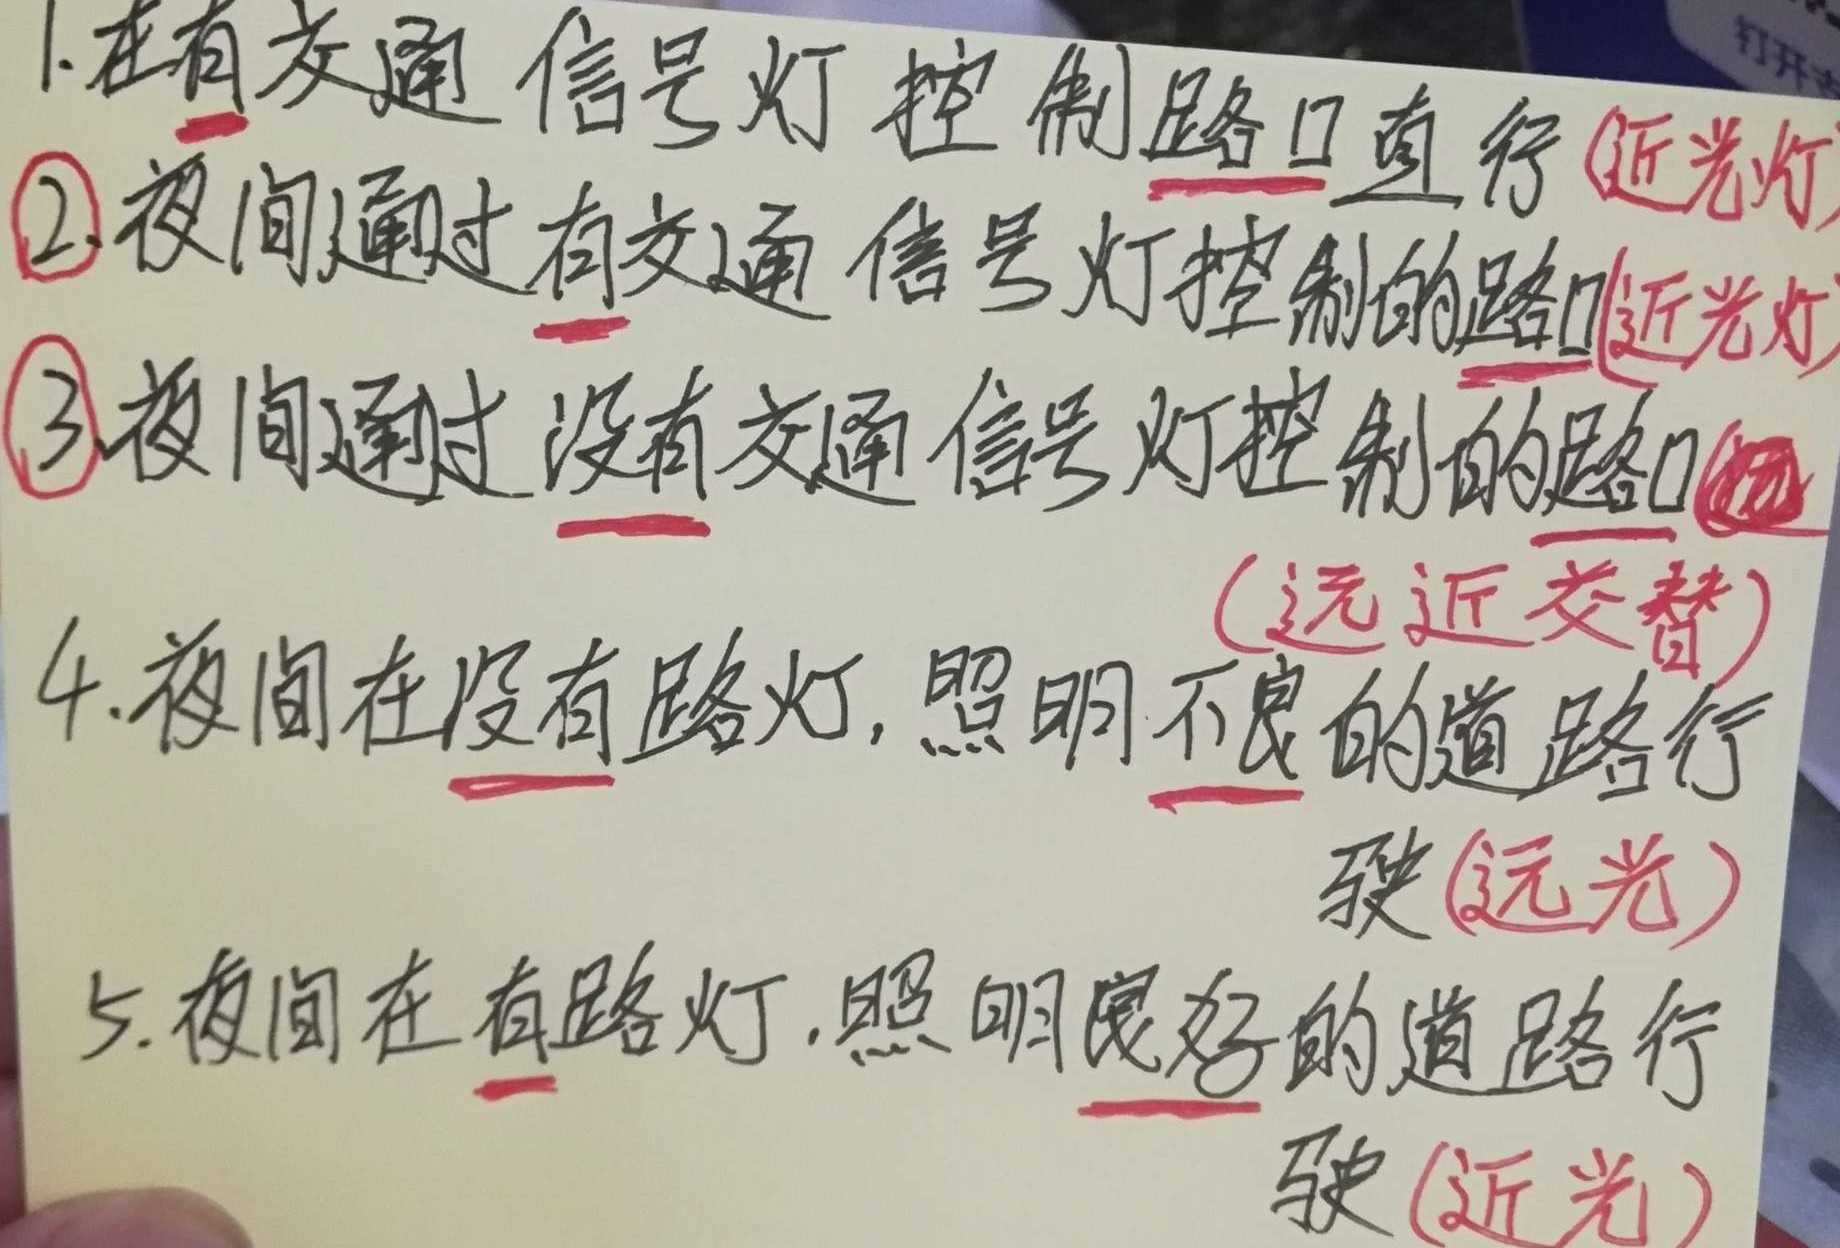 1.在有交通信号灯控制路口直行(近光灯)
②.夜间通过有交通信号灯控制的路口(近光灯)
③.夜间通过没有交通信号灯控制的路口
(远近交替)
4.夜间在没有路灯,照明不良的道路行
驶(远光)
5.夜间在有路灯.照明良好的道路行
驶(近光)
打开